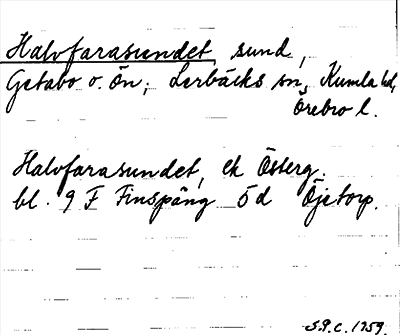 Halvfarasundet, sund,
Getabo o. Ön; Lerbäcks sn, Kumla hd,
Örebro l.
Halvfarasundet, ek Österg.
bl. 9 F Finspång 5d Öjetorp.
S.P.C. 1959.